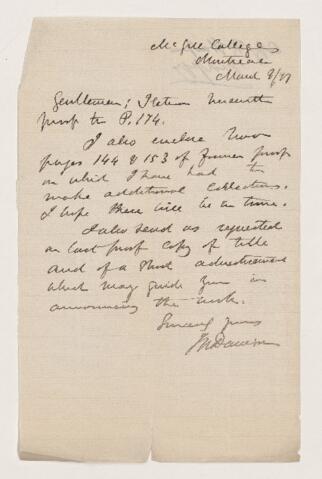 McGill College
Montreal
March 8/77
Gentlemen; I return herewith
proof to P. 174.
I also enclose two
pages 144 & 153 of former proof
on which I have had to
make additional corrections.
I hope these will be in time.
I also send as requested
on last proof copy of title
and of a short advertisement
which may guide you in
announcing the work.
Sincerely yours
JWDawson